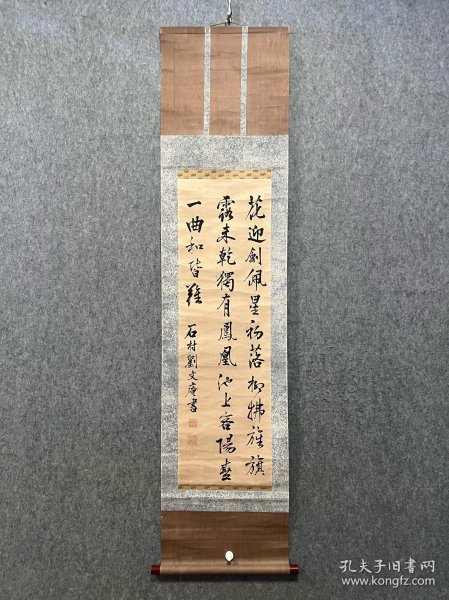 花迎劍佩星初落柳拂旌旗
露未乾獨有鳳凰池上客陽春
一曲和皆難
石村劉文庵書
孔夫子旧书网
www.kongfz.com